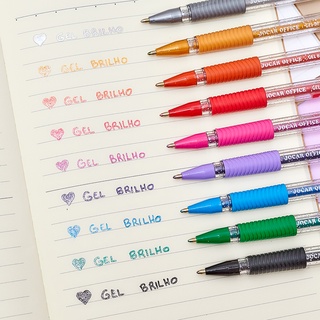 GEL BRILHO
GEL BRILHO
GEL BRILHO
GEL BRILHO
GEL BRILHO
GEL BRILHO
GEL BRILHO
GEL BRILHO
GEL BRILHO
JOCAR OFFICE
JOCAR OFFICE
JOCAR OFFICE
JOCAR OFFICE
JOCAR OFFICE